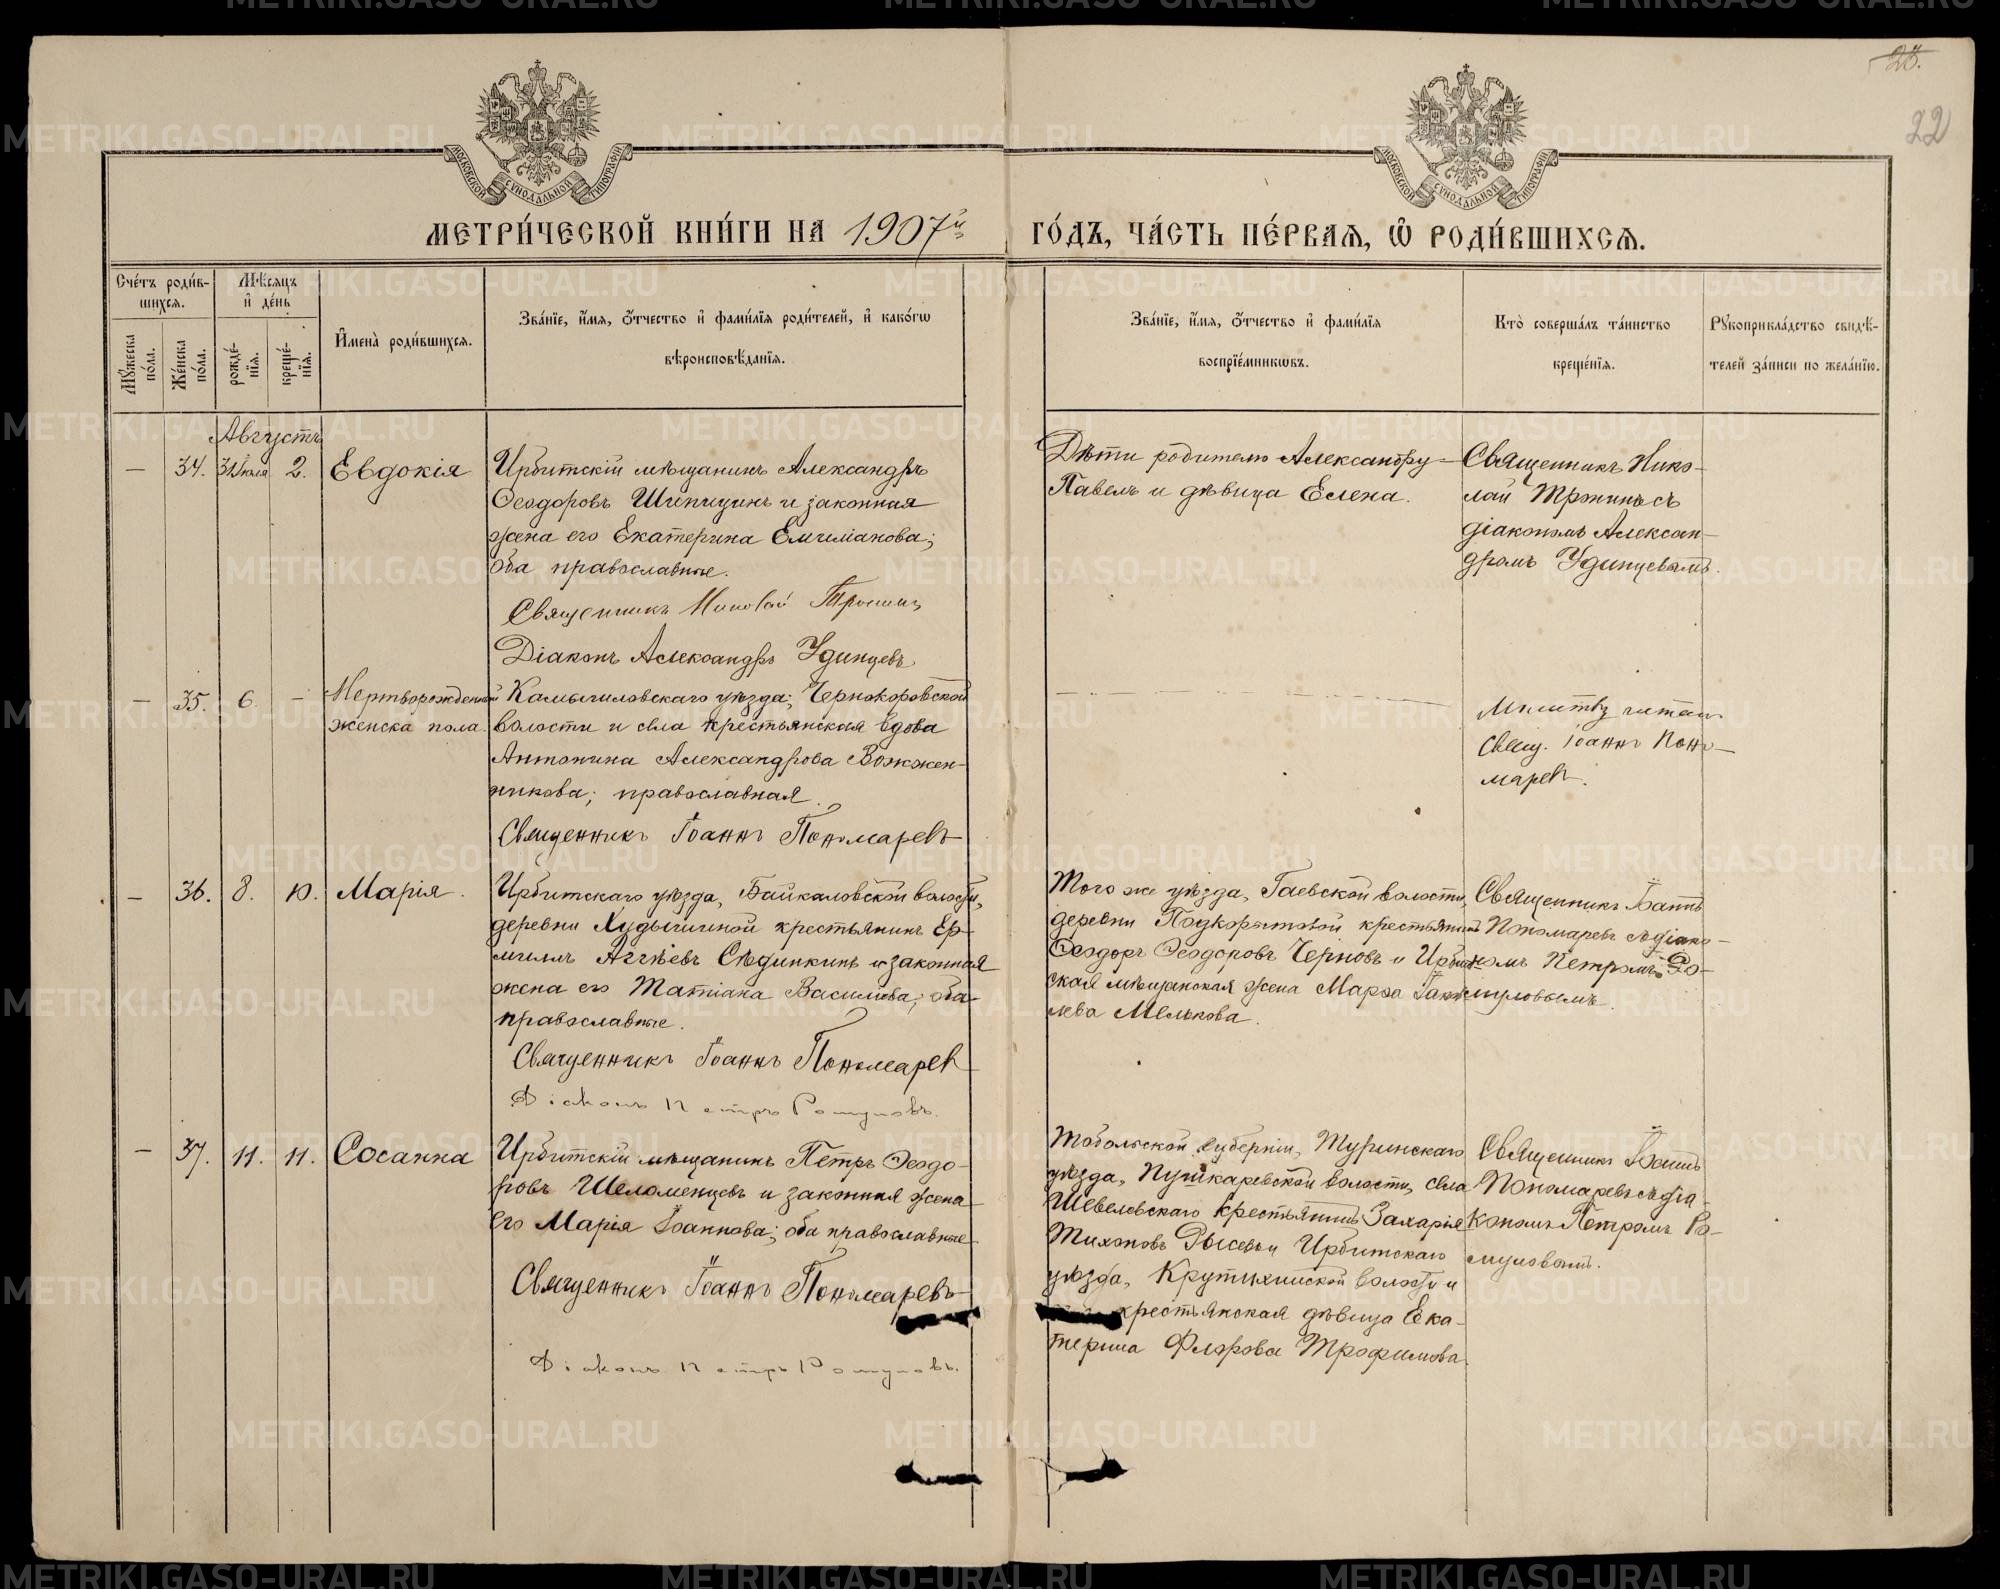 28.
22
МОСКОВСКОЙ СУНОДАЛЬНОЙ ТИПОГРАФІИ
МОСКОВСКОЙ СУНОДАЛЬНОЙ ТИПОГРАФІИ
МЕТРИ́ЧЕСКОЙ КНИ́ГИ НА 1907й
ГО́ДЪ, ЧА́СТЬ ПЕ́РВАѦ, Ѡ РОДИ́ВШИХСѦ.
Сче́тъ роди́в-
шихсѧ.
Мѣ́сѧцъ
и де́нь
Мꙋ́жеска по́ла.
Же́нска по́ла.
рожде́-
нїѧ.
креще́-
нїѧ.
И҆мена̀ роди́вшихсѧ.
Зва́нїе, и҆́мѧ, ѻ҆́тчество и҆ фами́лїѧ роди́телей, и҆ како́гѡ
вѣроисповѣ́данїѧ.
Зва́нїе, и҆́мѧ, ѻ҆́тчество и҆ фами́лїѧ
воспрїе́мникѡвъ.
Кто̀ соверша́лъ та́инство
креще́нїѧ.
Рꙋкоприкла́дство свидѣ́-
телей за́писи по жела́нїю.
Августъ
— 34. 31 Іюля 2. Евдокія
Ирбитскій мѣщанинъ Александръ
Ѳеодоровъ Шипицинъ и законная
жена его Екатерина Емиліанова;
оба православные.
Священникъ Николай Тронинъ
Діаконъ Александръ Удинцевъ
Дѣти родителю Александру —
Павелъ и дѣвица Елена.
Священникъ Нико-
лай Тронинъ съ
діакономъ Алексан-
дромъ Удинцевымъ.
— 35. 6. — Мертворожденный
женска пола.
Камышловскаго уѣзда, Чернокоровской
волости и села крестьянская вдова
Антонина Александрова Вожжен-
никова; православная.
Священникъ Іоаннъ Пономаревъ
Молитву читалъ
Свящ. Іоаннъ Поно-
маревъ.
— 36. 8. 10. Марія.
Ирбитскаго уѣзда, Байкаловской волости,
деревни Худышиной крестьянинъ Ер-
милъ Аггѣевъ Сѣдинкинъ и законная
жена его Татіана Васильева; оба
православные.
Священникъ Іоаннъ Пономарев
Діаконъ Петръ Ромуловъ.
Того же уѣзда, Гаевской волости,
деревни Подкорытовой крестьянинъ
Ѳеодоръ Ѳеодоровъ Черновъ и Ирбит-
ская мѣщанская жена Марѳа Іаков-
лева Мелькова.
Священникъ Іоаннъ
Пономаревъ съ діако-
номъ Петромъ Ро-
муловымъ.
— 37. 11. 11. Сосанна
Ирбитскій мѣщанинъ Петръ Ѳеодо-
ровъ Шеломенцевъ и законная жена
его Марія Іоаннова; оба православные.
Священникъ Іоаннъ Пономаревъ
Діаконъ Петръ Ромуловъ.
Тобольской губерніи, Туринскаго
уѣзда, Пушкаревской волости, села
Шевелевскаго крестьянинъ Захарія
Тихоновъ Рысевъ и Ирбитскаго
уѣзда, Крутихинской волости и
крестьянская дѣвица Ека-
терина Флорова Трофимова.
Священникъ Іоаннъ
Пономаревъ съ діа-
кономъ Петромъ Ро-
муловымъ.
METRIKI.GASO-URAL.RU